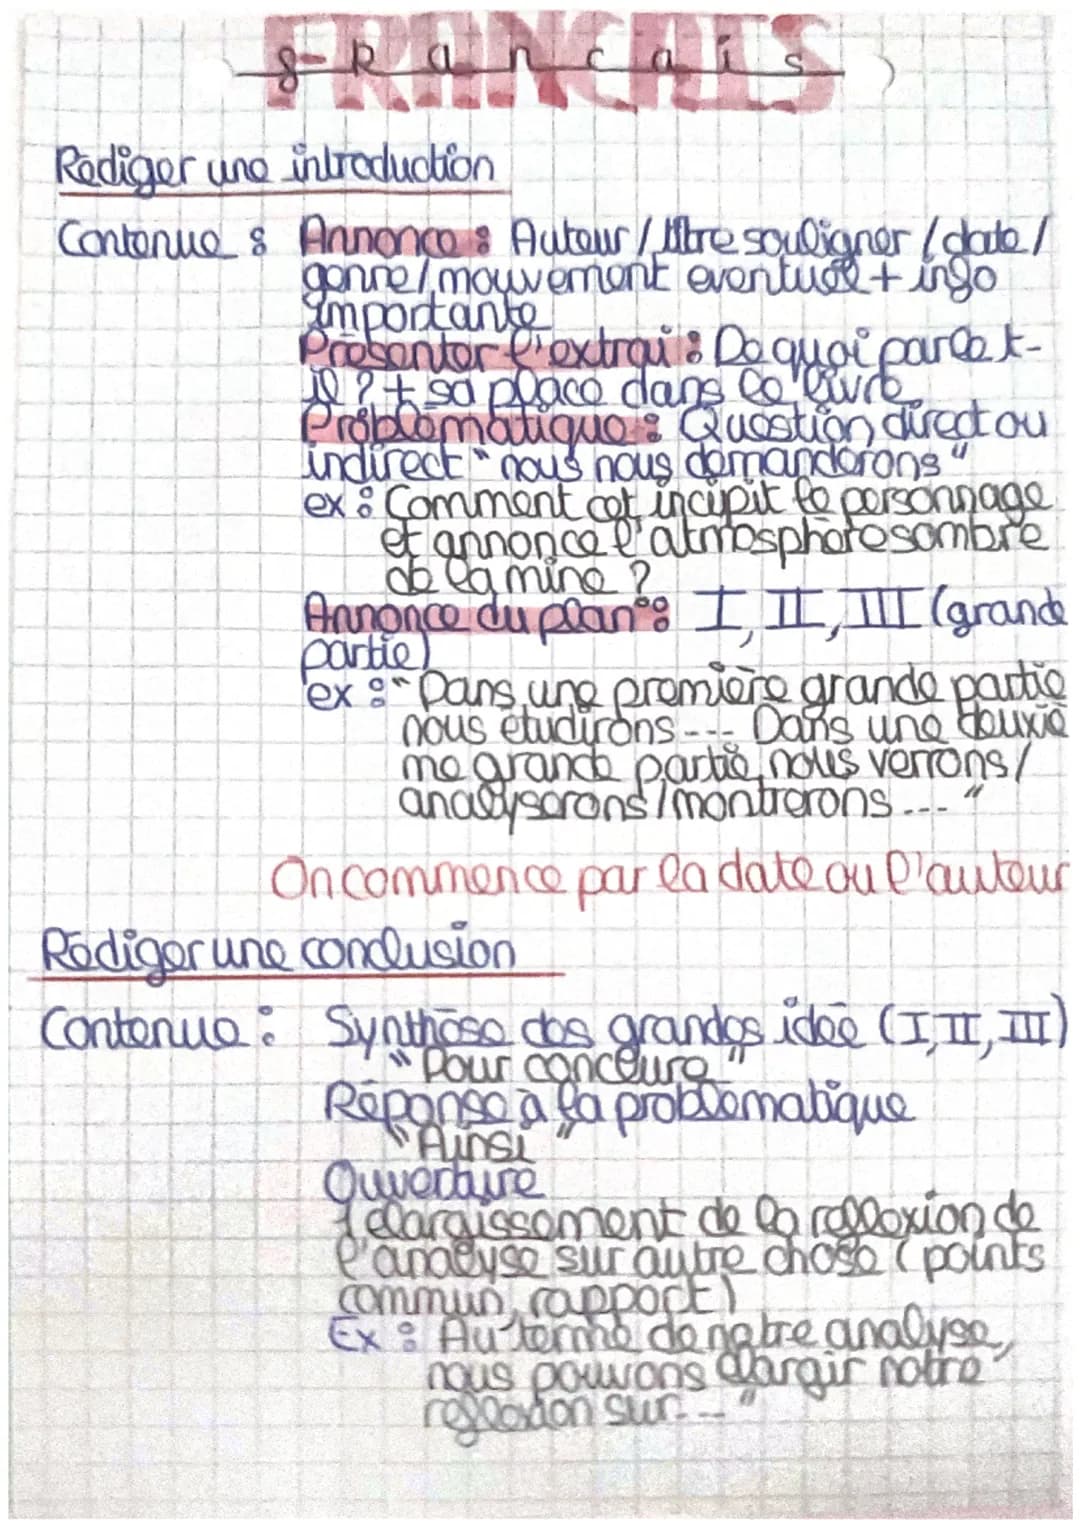 FRANCAIS
francais
Rédiger une introduction
Contenue : Annonce : Auteur / titre souligner / date /
genre / mouvement eventuel + info
importante
Présenter l'extrai : De quoi parle t-
il ? + sa place dans le livre
Problématique : Question direct ou
indirect "nous nous demanderons"
ex : Comment cet incipit le personnage
et annonce l'atmosphère sombre
de la mine ?
Annonce du plan : I, II, III (grande
partie)
ex : "Dans une première grande partie
nous étudirons --- Dans une deuxiè
me grande partie, nous verrons /
analyserons / montrerons ... "
On commence par la date ou l'auteur
Rédiger une conclusion
Contenue : Synthèse des grandes idée (I, II, III)
"Pour conclure"
Réponse à la problématique
"Ainsi"
Ouverture
élargissement de la reflexion de
l'analyse sur autre chose (points
commun, rapport)
Ex : Au terme de notre analyse,
nous pouvons élargir notre
reflexion sur... "